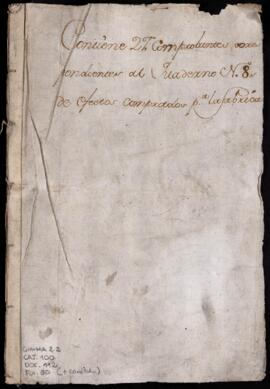 Contiene 27 Comprobantes corres
pondientes al Quaderno N. 8
de efectos comprados p.ª la fabrica
CAT. 100
DOC. 112
FOL. 80 (+ carátula)